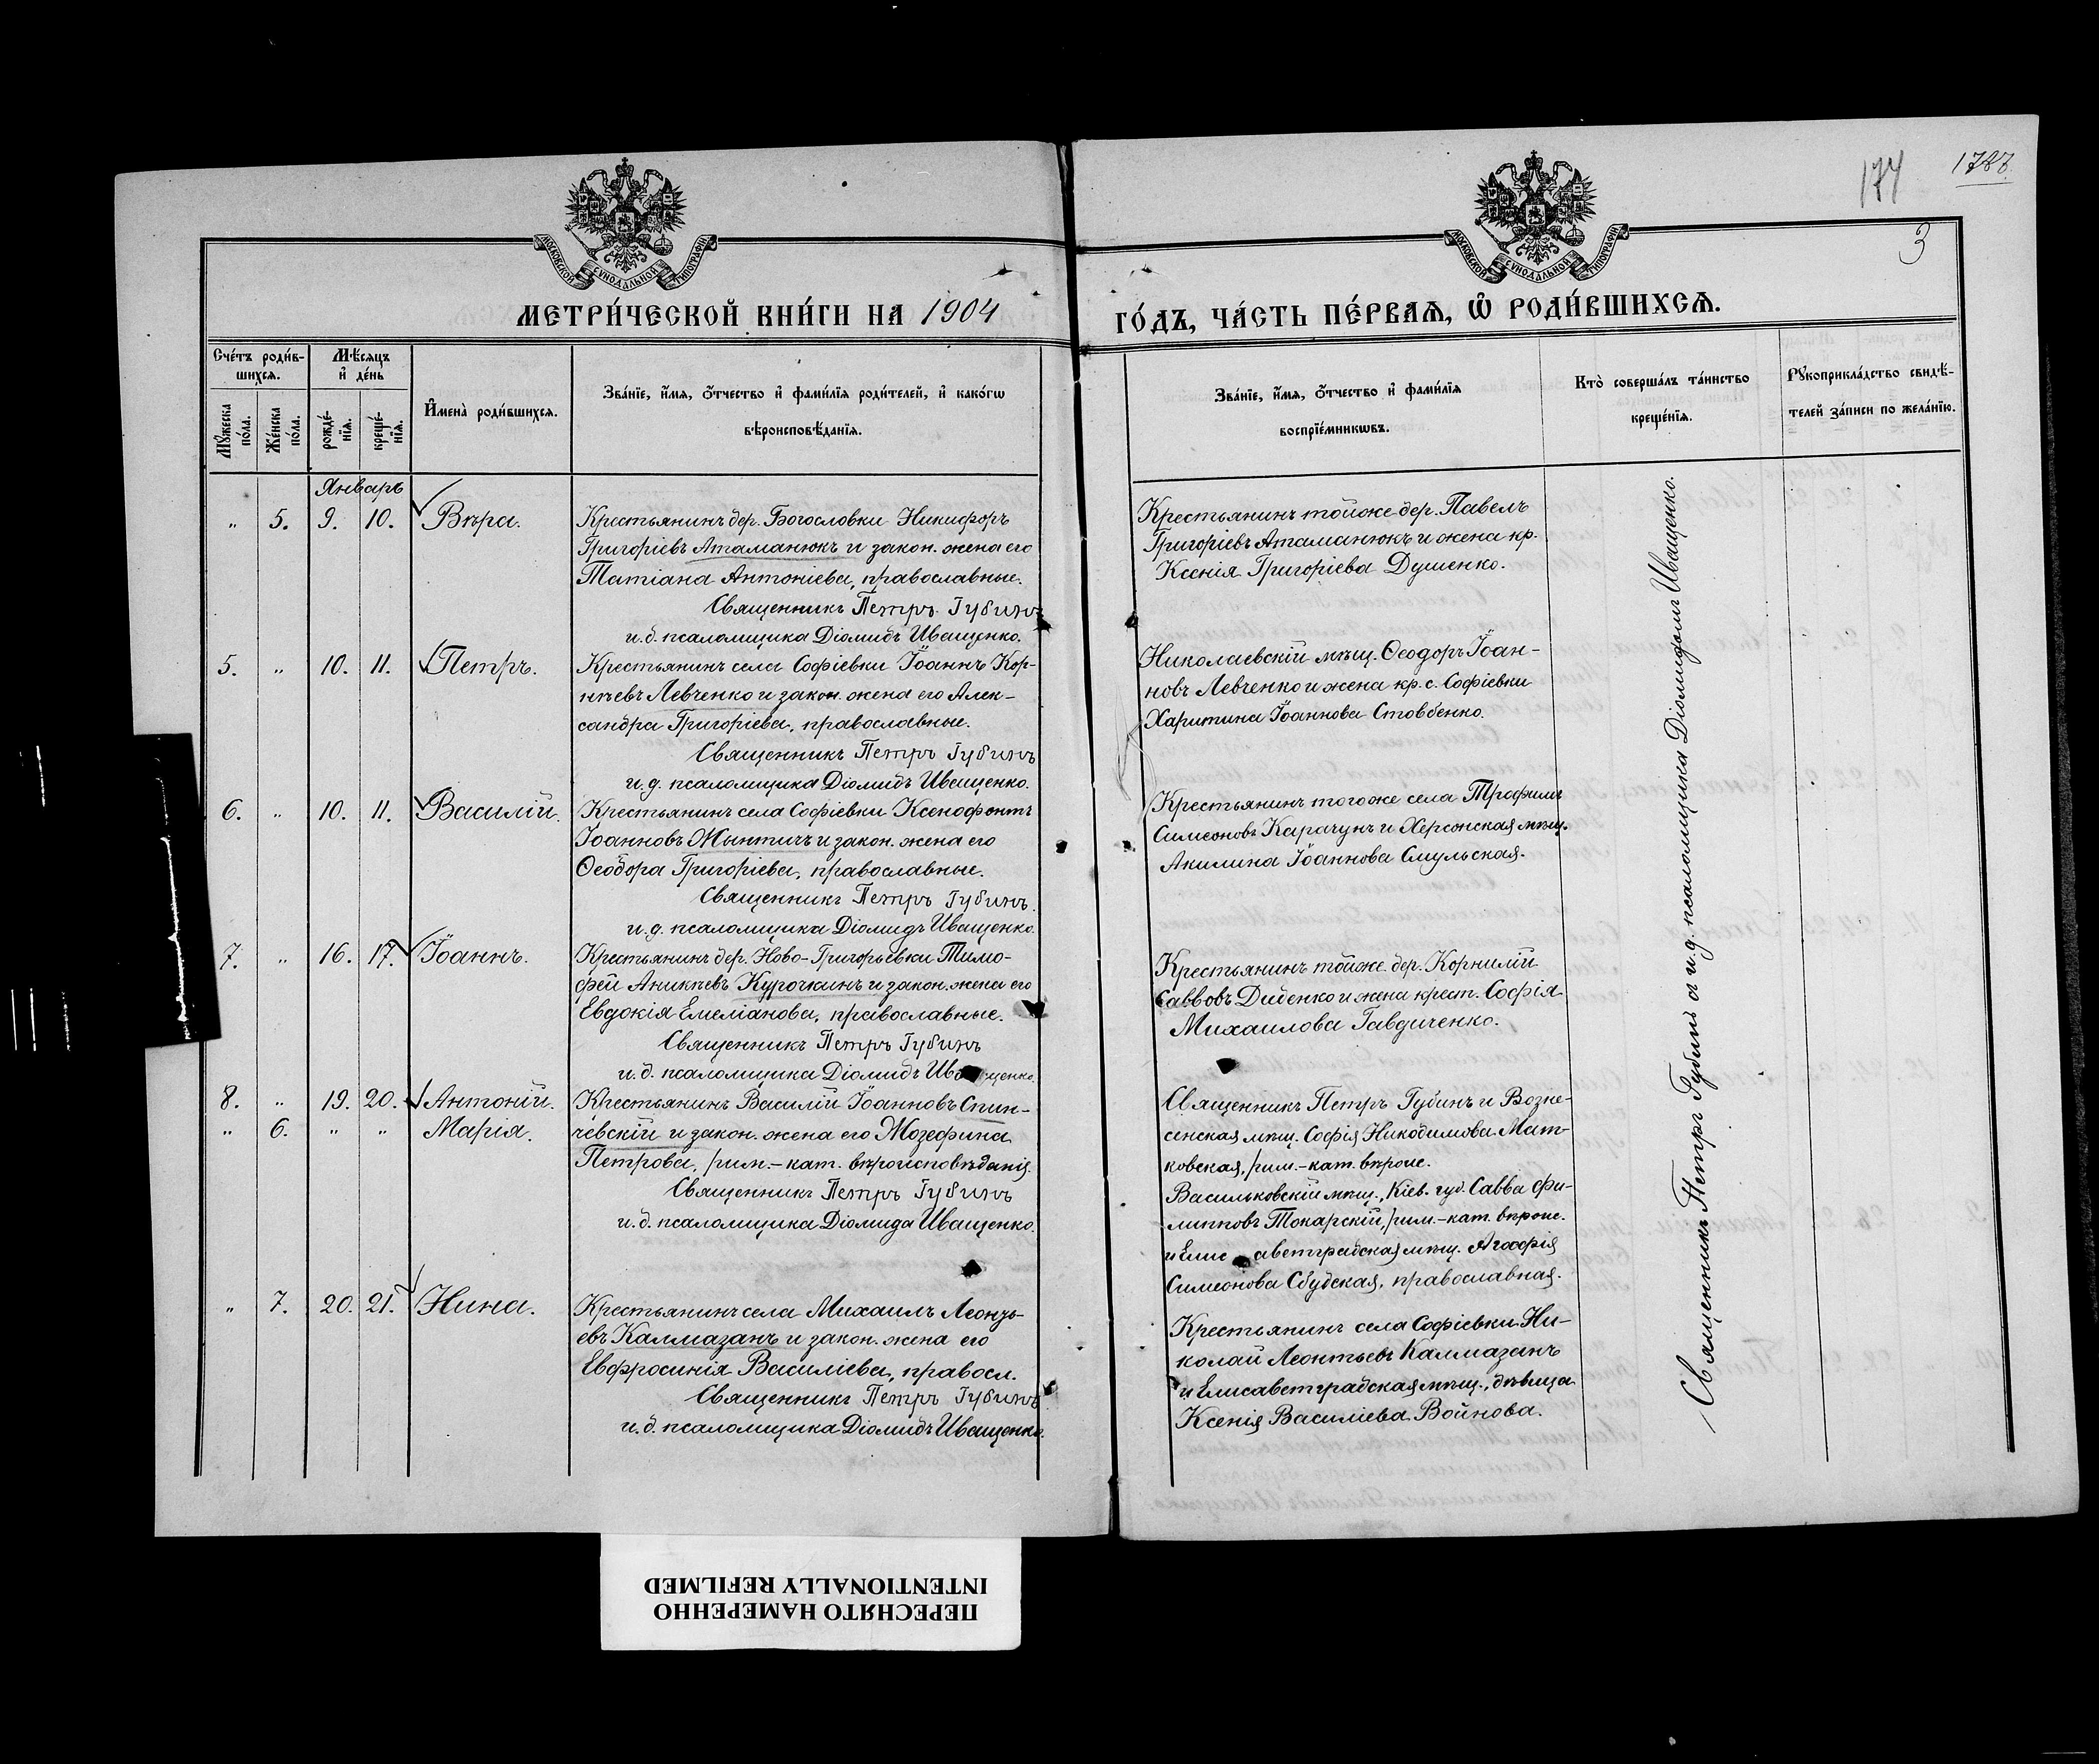 174
1787
3
МОСКОВСКОЙ СУНОДАЛЬНОЙ ТИПОГРАФІИ
МОСКОВСКОЙ СУНОДАЛЬНОЙ ТИПОГРАФІИ
МЕТРИ́ЧЕСКОЙ КНИ́ГИ НА 1904
ГО́ДЪ, ЧА́СТЬ ПЕ́РВАѦ, Ѿ РОДИ́ВШИХСѦ.
Сче́тъ роди́в-
шихсѧ.
Мѣ́сѧцъ
и҆ де́нь
Мꙋ́жеска
по́ла.
Же́нска
по́ла.
рожде́-
нїѧ.
креще́-
нїѧ.
И҆мена̀ роди́вшихсѧ.
Зва́нїе, и҆́мѧ, ѻ҆́тчество и҆ фами́лїѧ роди́телей, и҆ како́гѡ
вѣроисповѣ́данїѧ.
Зва́нїе, и҆́мѧ, ѻ҆́тчество и҆ фами́лїѧ
воспрїе́мникѡвъ.
Кто̀ соверша́лъ та́инство
креще́нїѧ.
Рꙋкоприкла́дство свидѣ́-
телей за́писи по жела́нїю.
Январь
" 5. 9. 10. Вѣра.
Крестьянинъ дер. Богословки Никифоръ
Григоріевъ Атаманюкъ и закон. жена его
Татіана Антоніева, православные.
Священникъ Петръ Губинъ
и. д. псаломщика Діомидъ Иващенко.
Крестьянинъ тойже дер. Павелъ
Григоріевъ Атаманюкъ и жена кр.
Ксенія Григоріева Душенко.
5. " 10. 11. Петръ.
Крестьянинъ села Софіевки Іоаннъ Кор-
нѣевъ Левченко и закон. жена его Алек-
сандра Григоріева, православные.
Священникъ Петръ Губинъ
и. д. псаломщика Діомидъ Иващенко.
Николаевскій мѣщ. Ѳеодоръ Іоан-
новъ Левченко и жена кр. с. Софіевки
Харитина Іоаннова Стовбенко.
6. " 10. 11. Василій.
Крестьянинъ села Софіевки Ксенофонтъ
Іоанновъ Мынтичъ и закон. жена его
Ѳеодора Григоріева, православные.
Священникъ Петръ Губинъ.
и. д. псаломщика Діомидъ Иващенко.
Крестьянинъ тогоже села Трофимъ
Симеоновъ Карачунъ и Херсонская мѣщ.
Акилина Іоаннова Смульская.
7. " 16. 17. Іоаннъ.
Крестьянинъ дер. Ново-Григорьевки Тимо-
фей Аникѣевъ Курочкинъ и закон. жена его
Евдокія Емеліанова, православные.
Священникъ Петръ Губинъ
и. д. псаломщика Діомидъ Иващенко.
Крестьянинъ тойже дер. Корнилій
Саввовъ Диденко и жена крест. Софія
Михаилова Гавдиченко.
8. " 19. 20. Антоній.
" 6. " " Марія.
Крестьянинъ Василій Іоанновъ Спин-
чевскій и закон. жена его Жозефина
Петрова, рим.-кат. вѣроисповѣданія.
Священникъ Петръ Губинъ
и. д. псаломщика Діомида Иващенко.
Священникъ Петръ Губинъ и Возне-
сенская мѣщ. Софія Никодимова Мат-
ковская, рим.-кат. вѣроис.
Васильковскій мѣщ., Кіев. губ. Савва Фи-
липповъ Токарскій, рим.-кат. вѣроис.
и Елисаветградская мѣщ. Агафія
Симеонова Сбудская, православная.
" 7. 20. 21. Нина.
Крестьянинъ села Михаилъ Леонть-
евъ Калмазанъ и закон. жена его
Евфросинія Василіева, правосл.
Священникъ Петръ Губинъ
и. д. псаломщика Діомидъ Иващенко.
Крестьянинъ села Софіевки Ни-
колай Леонтьевъ Калмазанъ
и Елисаветградская мѣщ., дѣвица
Ксенія Василіева Войнова.
Священникъ Петръ Губинъ съ и. д. псаломщика Діомидомъ Иващенко.
ПЕРЕСНЯТО НАМЕРЕННО
INTENTIONALLY REFILMED